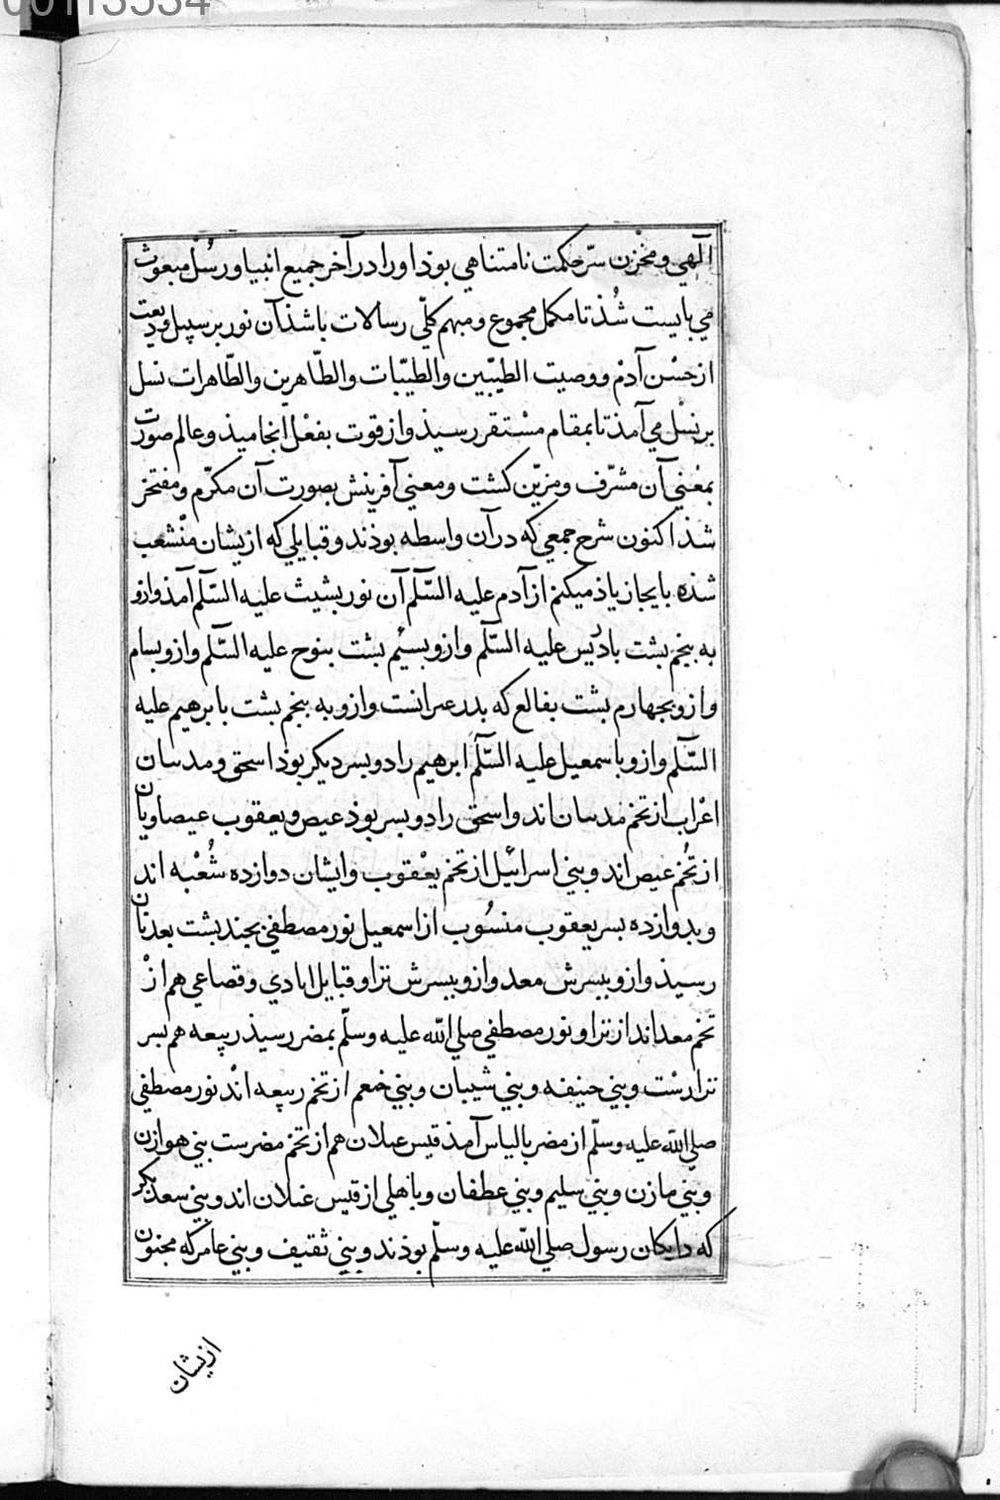 00113534
الٓهي ومخْزن سرّ حكمت نامتناهي بوذ اورا در آخر جميع انبيا ورسُل مبعوث
مي بايست شُذ تا مكمل مجموع ومبهم كلّي رسالات باشذ آن نور بر سبيل وديعت
از حسْن آدم ووصيت الطيّبين والطيّبات والطّاهرين والطّاهرات نسل
بر نسْل مي آمذ تا بمقام مسْتقر رسيذ واز قوت بفعْل انجاميذ وعالم صورت
بمعْني آن مشرّف ومزيّن كشت ومعني آفرينش بصورت آن مكرّم ومفتخر
شذ اكنون شرح جمعي كه در آن واسطه بوذند وقبايلي كه ازيشان منْشعب
شذه بايجاز ياذ ميكنم از آدم عليه السّلٓم آن نور بشيث عليه السّلٓم آمذ وازو
به بنجم بشت بادريس عليه السّلٓم وازو بسيُم بشت بنوح عليه السّلٓم وازو بسام
وازو بجهارم بشت بفالع كه بدر عبرانست وازو به بنجم بشت بابرهيم عليه
السّلٓم وازو باسمعيل عليه السّلٓم ابرهيم را دو بسر ديكر بوذ اسحق ومدسان
اعْراب از تخم مدسان اند واسحق را دو بسر بوذ عيص ويعقوب عيصاويان
از تُخم عيص اند وبني اسرائيل از تخم يعْقوب وايشان دوازده شُعْبه اند
وبدوازده بسر يعقوب منسُوب از اسمعيل نور مصطفي بجند بشت بعدنان
رسيذ وازو ببسرش معد وازو ببسرش نزار وقبايل ايادي وقضاعي هم ازْ
تخم معد اند از نزار نور مصطفي صلي الله عليه وسلّم بمضر رسيذ ربيعه هم بسر
نزارسْت وبني حنيفه وبني شيبان وبني خثعم از تخم ربيعه انْد نور مصطفي
صلي الله عليه وسلّم از مضر بالياس آمذ قيس عيلان هم از تخم مضرست بني هوازن
وبني مازن وبني سليم وبني عطفان وباهلي از قيس غيلان اند وبني سعد بكر
كه دايكان رسول صلي الله عليه وسلّم بوذند وبني ثقيف وبني عامر كه مجنون
ازيشان